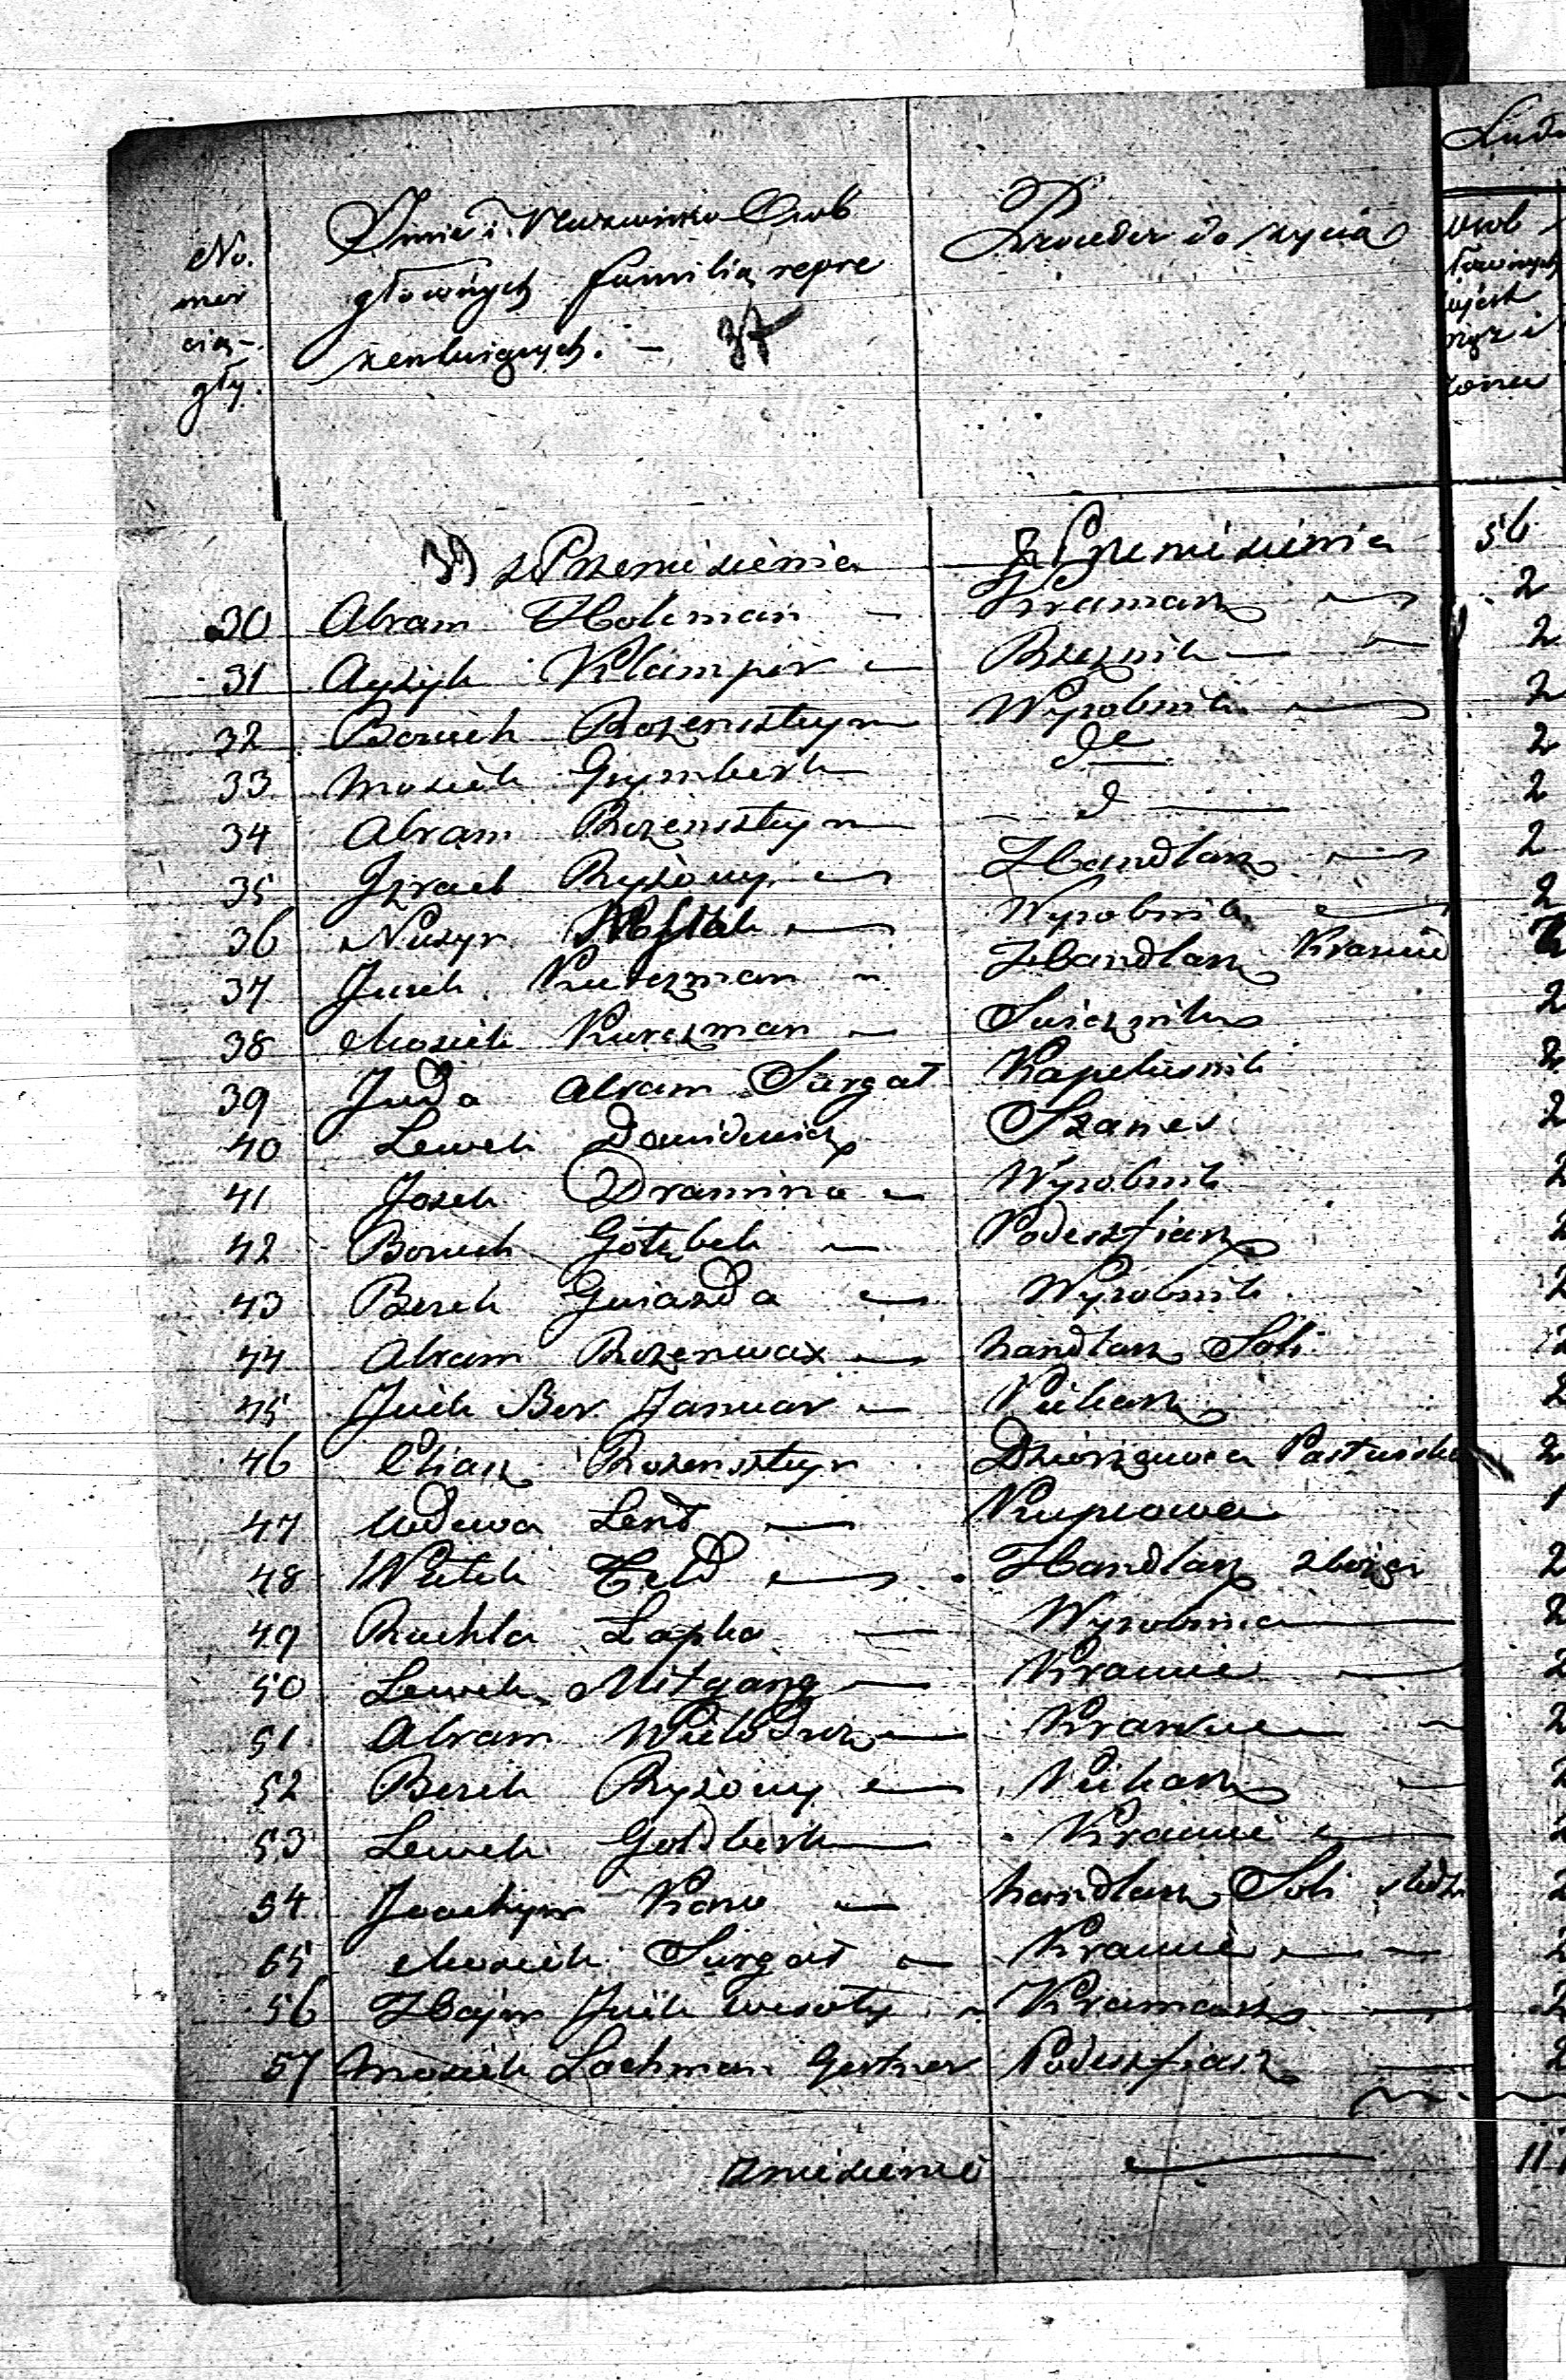 No. mer cią- gły.
Imie i Nazwisko Osób
głównych familią repre
zentuiących. — 37
Proceder do życia
Ludn
osob
głównych
mąż i
żona
z Przeniesienia z Przeniesienia 56
30 Abram Holcman — Kramarz — 2
31 Ayzyk Klamper — Rzeznik — 2
32 Boruch Rozenszteyn Wyrobnik — 2
33 Mosiek Grymberk de — 2
34 Abram Rozenszteyn — d — 2
35 Izrael Ryżowy — Handlarz — 2
36 Nusyn — Wyrobnik — 2
37 Jcek Kurczman — Handlarz Kramić 2
38 Mosiek Kurczman — 2
39 Juda Abram Surgał Kapelusnik 2
40 Lewek Dawidowicz Szames 2
41 Josek Dramina — Wyrobnik 2
42 Boruch Gołębek — Poderzfiarz 2
43 Berek Gwiazda — Wyrobnik 2
44 Abram Rozenwax — handlarz Soli 2
45 Jcek Ber Januar — Piekarz 2
46 Eliasz Rozenszteyn Dzierzawca Pastwiska 2
47 Wdowa Lend — Kupcowa 1
48 Wolek Feld — Handlarz zboża 2
49 Ruchla Lapka — Wyrobnica — 2
50 Lewek Mitgang — Kramić — 2
51 Abram — Kramić — 2
52 Berek Ryżowy — Piekarz — 2
53 Lewek Goldberk — Kramić — 2
54 Joachym Kano — handlarz Soli śledzi 2
55 Mosiek Surgał — Kramić — 2
56 Haym Jcek Wesoły — Kramarz — 2
57 Mosiek Lachman Gertner Poderzfiarz — 2
zniesienie — 11